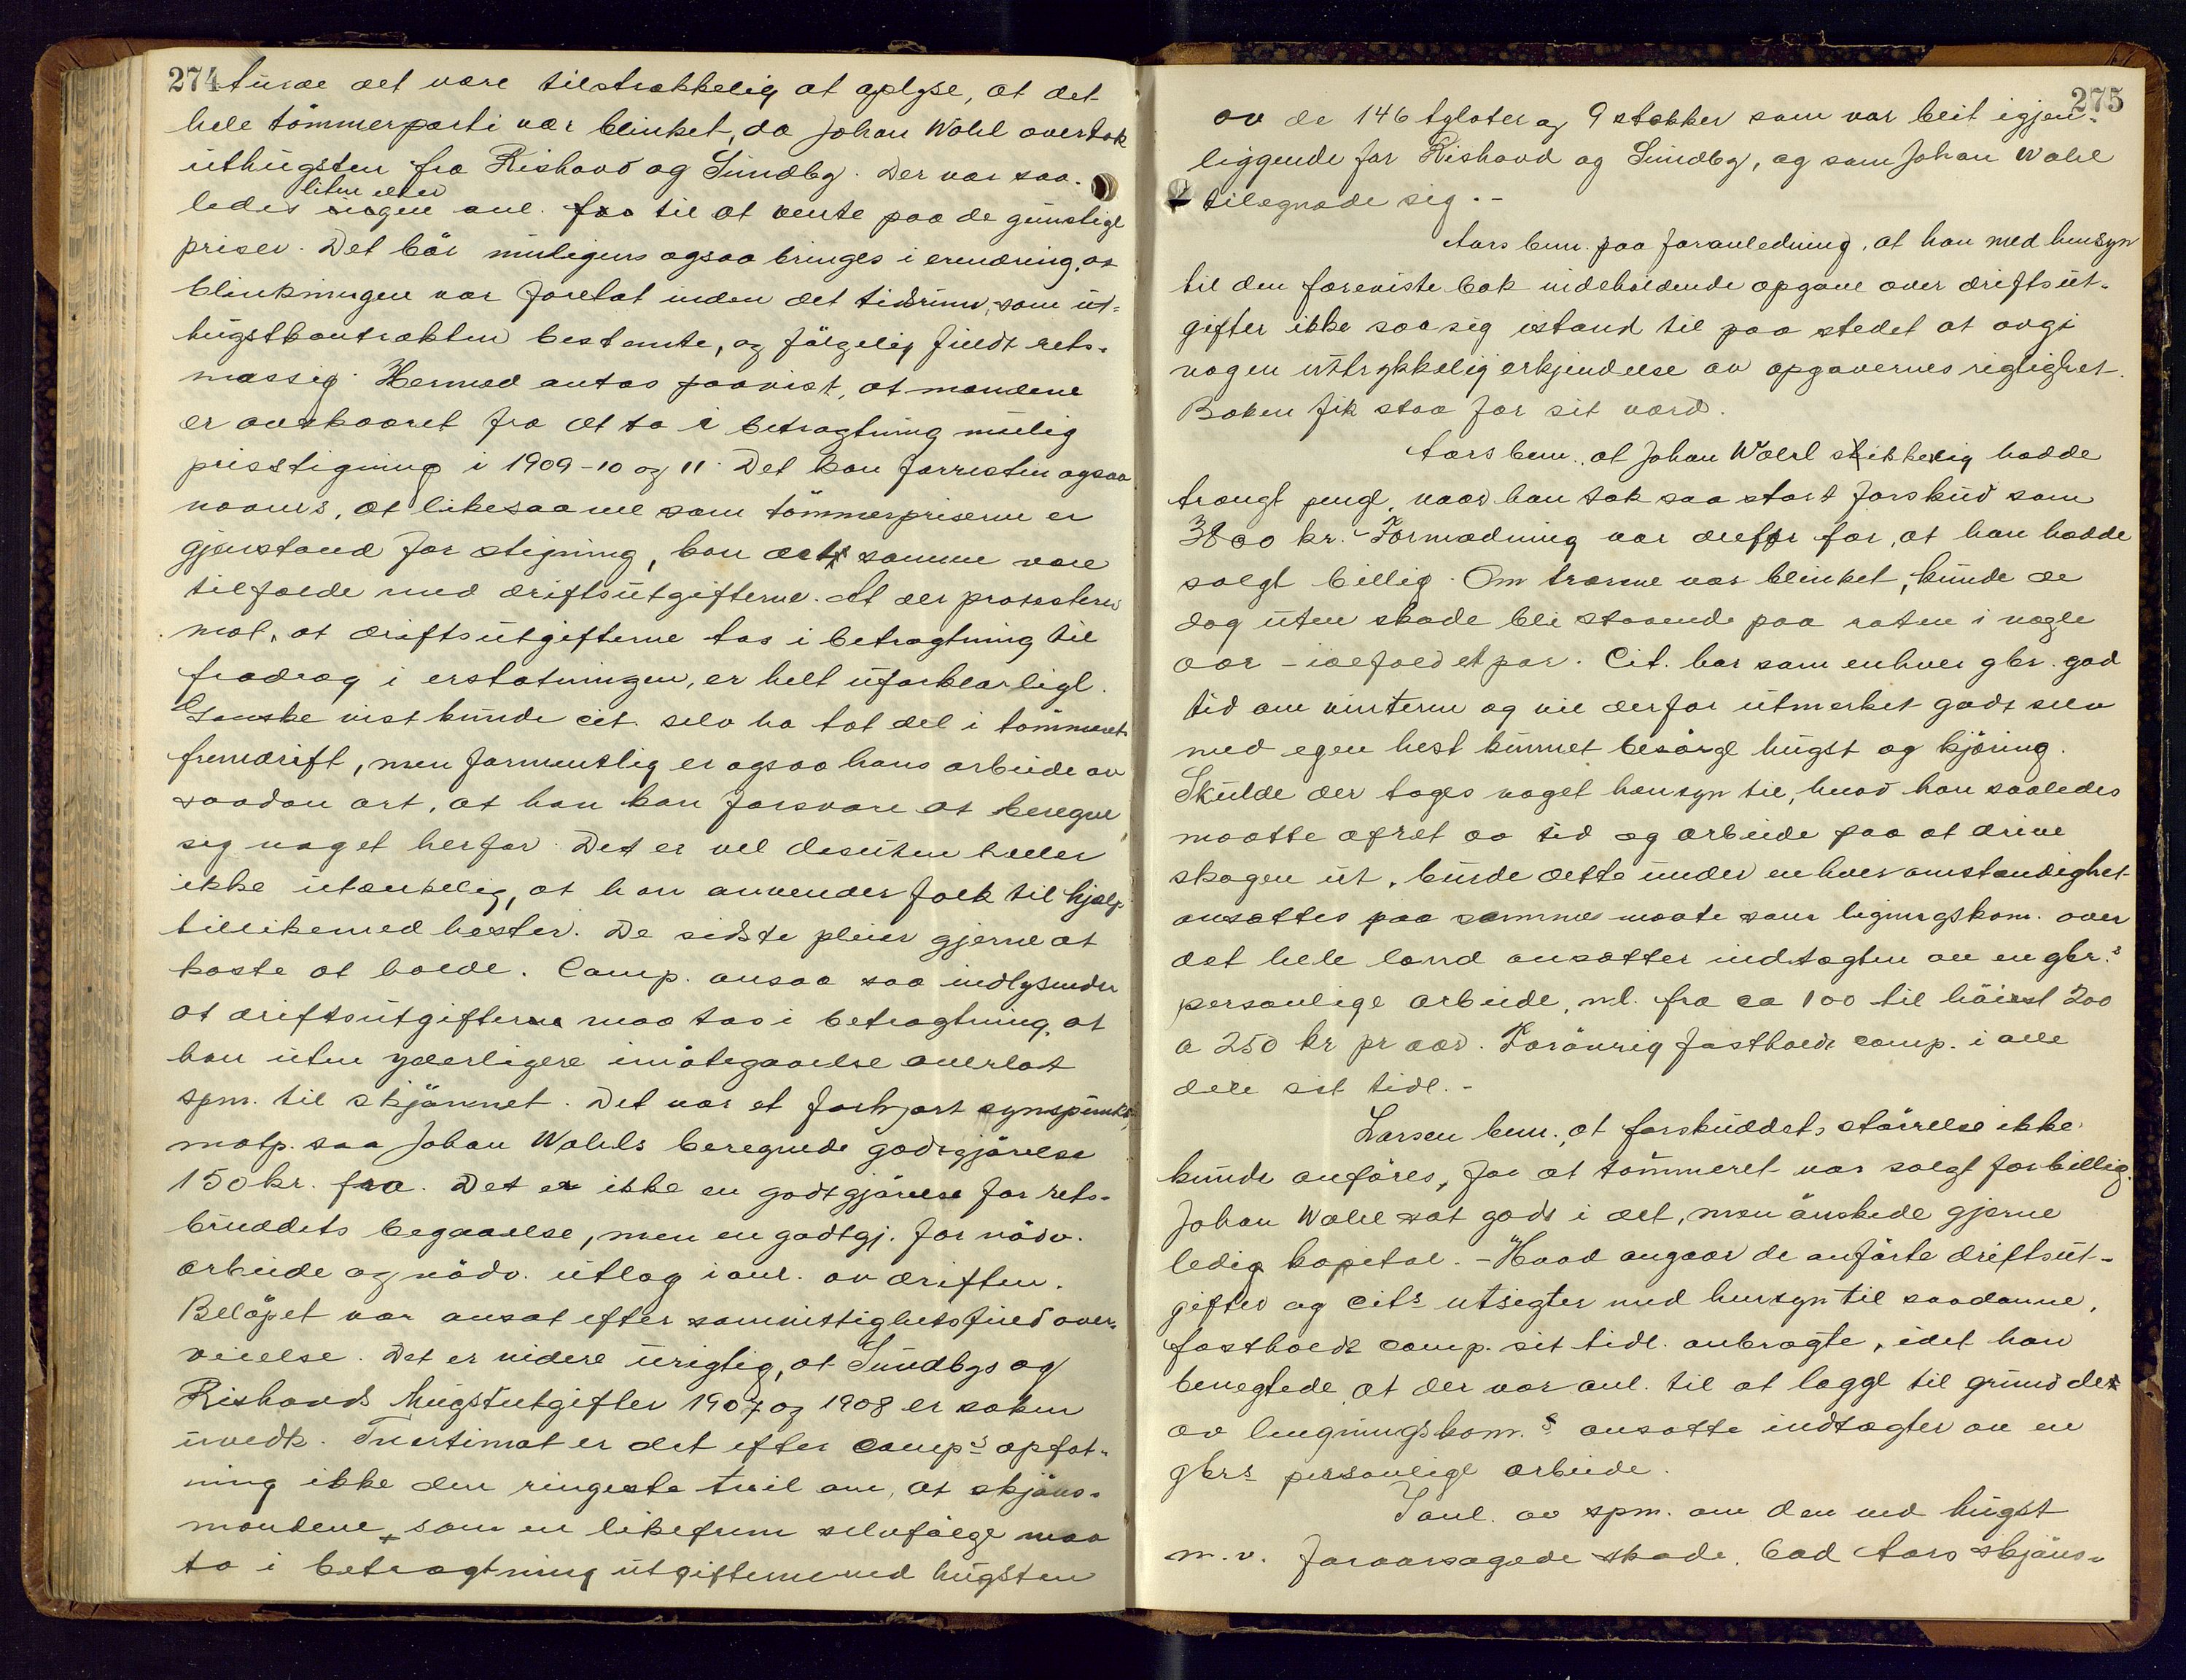 274
turde det være tilstrækkelig at oplyse, at det
hele tömmerparti var blinket, da Johan Wohl overtok
uthugsten fra Rishovd og Sundby. Der var saa-
liten eller
ledes ingen anl. til at vente paa de gunstige
priser. Det bör muligens ogsaa bringes i erindring, at
blinkningen var foretat inden det tidsrum, som ut-
hugstkontrakten bestemte, og fölgelig fuldt rets-
mæssig. Hermed antas paavist, at mændene
er avskaaret fra at ta i betragtning mulig
prisstigning i 1909-10 og 11. Det kan forresten ogsaa
nævnes, at likesaavel som tömmerpriserne er
gjenstand for stigning, kan det samme være
tilfælde med driftsutgifterne. At der protesteres
mot, at driftsutgifterne tas i betragtning til
fradrag i erstatningen, er helt uforklarligt.
Ganske vist kunde cit. selv ha tat del i tömmerets
fremdrift, men formentlig er ogsaa hans arbeide av
saadan art, at han kan forsvare at beregne
sig noget herfor. Det er vel desuten heller
ikke utænkelig, at han anvender folk til hjælp
tillikemed hester. De sidste pleier gjerne at
koste at holde. Comp. ansaa saa indlysende
at driftsutgifterne maa tas i betragtning, at
han uten yderligere imötegaaelse overlot
spm. til skjönnet. Det var et forkjært synspunkt,
motp. saa Johan Wohls beregnede godtgjörelse
150 kr. fra. Det er ikke en godtgjörelse for rets-
bruddets begaaelse, men en godtgj. for nödv.
arbeide og nödv. utlæg i anl. av driften.
Belöpet var ansat efter samvittighetsfuld over-
veielse. Det er videre urigtig, at Sundbys og
Rishovds hugstutgifter 1907 og 1908 er saken
uvedk. Tvertimot er det efter comps opfat-
ning ikke den ringeste tvil om, at skjöns-
mændene, som en likefrem selvfölge maa
ta i betragtning utgifterne ved hugsten
275
av de 146 tylvter og 9 stokker som var blit igjen-
liggende for Rishovd og Sundby, og som Johan Wohl
tilegnede sig.-
Aars bem. paa foranledning, at han med hensyn
til den foreviste bok indeholdende opgave over driftsut-
gifter ikke saa sig istand til paa stedet at avgi
nogen uttrykkelig erkjendelse av opgavernes rigtighet.
Boken fik staa for sit værd.
Aars bem., at Johan Wohl skikkelig hadde
trængt penge, naar han tok saa stort forskud som
3800 kr. Formodning var derfor for, at han hadde
solgt billig. Om trærne var blinket, kunde de
dog uten skade bli staaende paa roten i nogle
aar - ialfald et par. Cit. har som enhver gbr. god
tid om vinteren og vil derfor utmerket godt selv
med egen hest kunnet besörge hugst og kjöring.
Skulde der tages noget hensyn til, hvad han saaledes
maatte ofret av tid og arbeide paa at drive
skogen ut, burde dette under enhver omstændighet
ansættes paa samme maate som ligningskom. over
det hele land ansætter indtægten av en gbr.s
personlige arbeide, nl. fra ca 100 til höiest 200
a 250 kr pr aar. Forövrig fastholdt comp. i alle
dele sit tidl.-
Larsen bem., at forskuddets störrelse ikke
kunde anföres, for at tömmeret var solgt for billig.
Johan Wohl sat godt i det, men önskede gjerne
ledig kapital. - Hvad angaar de anförte driftsut-
gifter og cits utsigter med hensyn til saadanne,
fastholdt comp. sit tidl. anbragte, idet han
benegtede, at der var anl. til at lægge til grund de
av ligningskom.s ansatte indtægter av en
gbrs personlige arbeide.
I anl. av spm. om den ved hugst
m.v. foraarsagede skade, bad Aars skjöns-